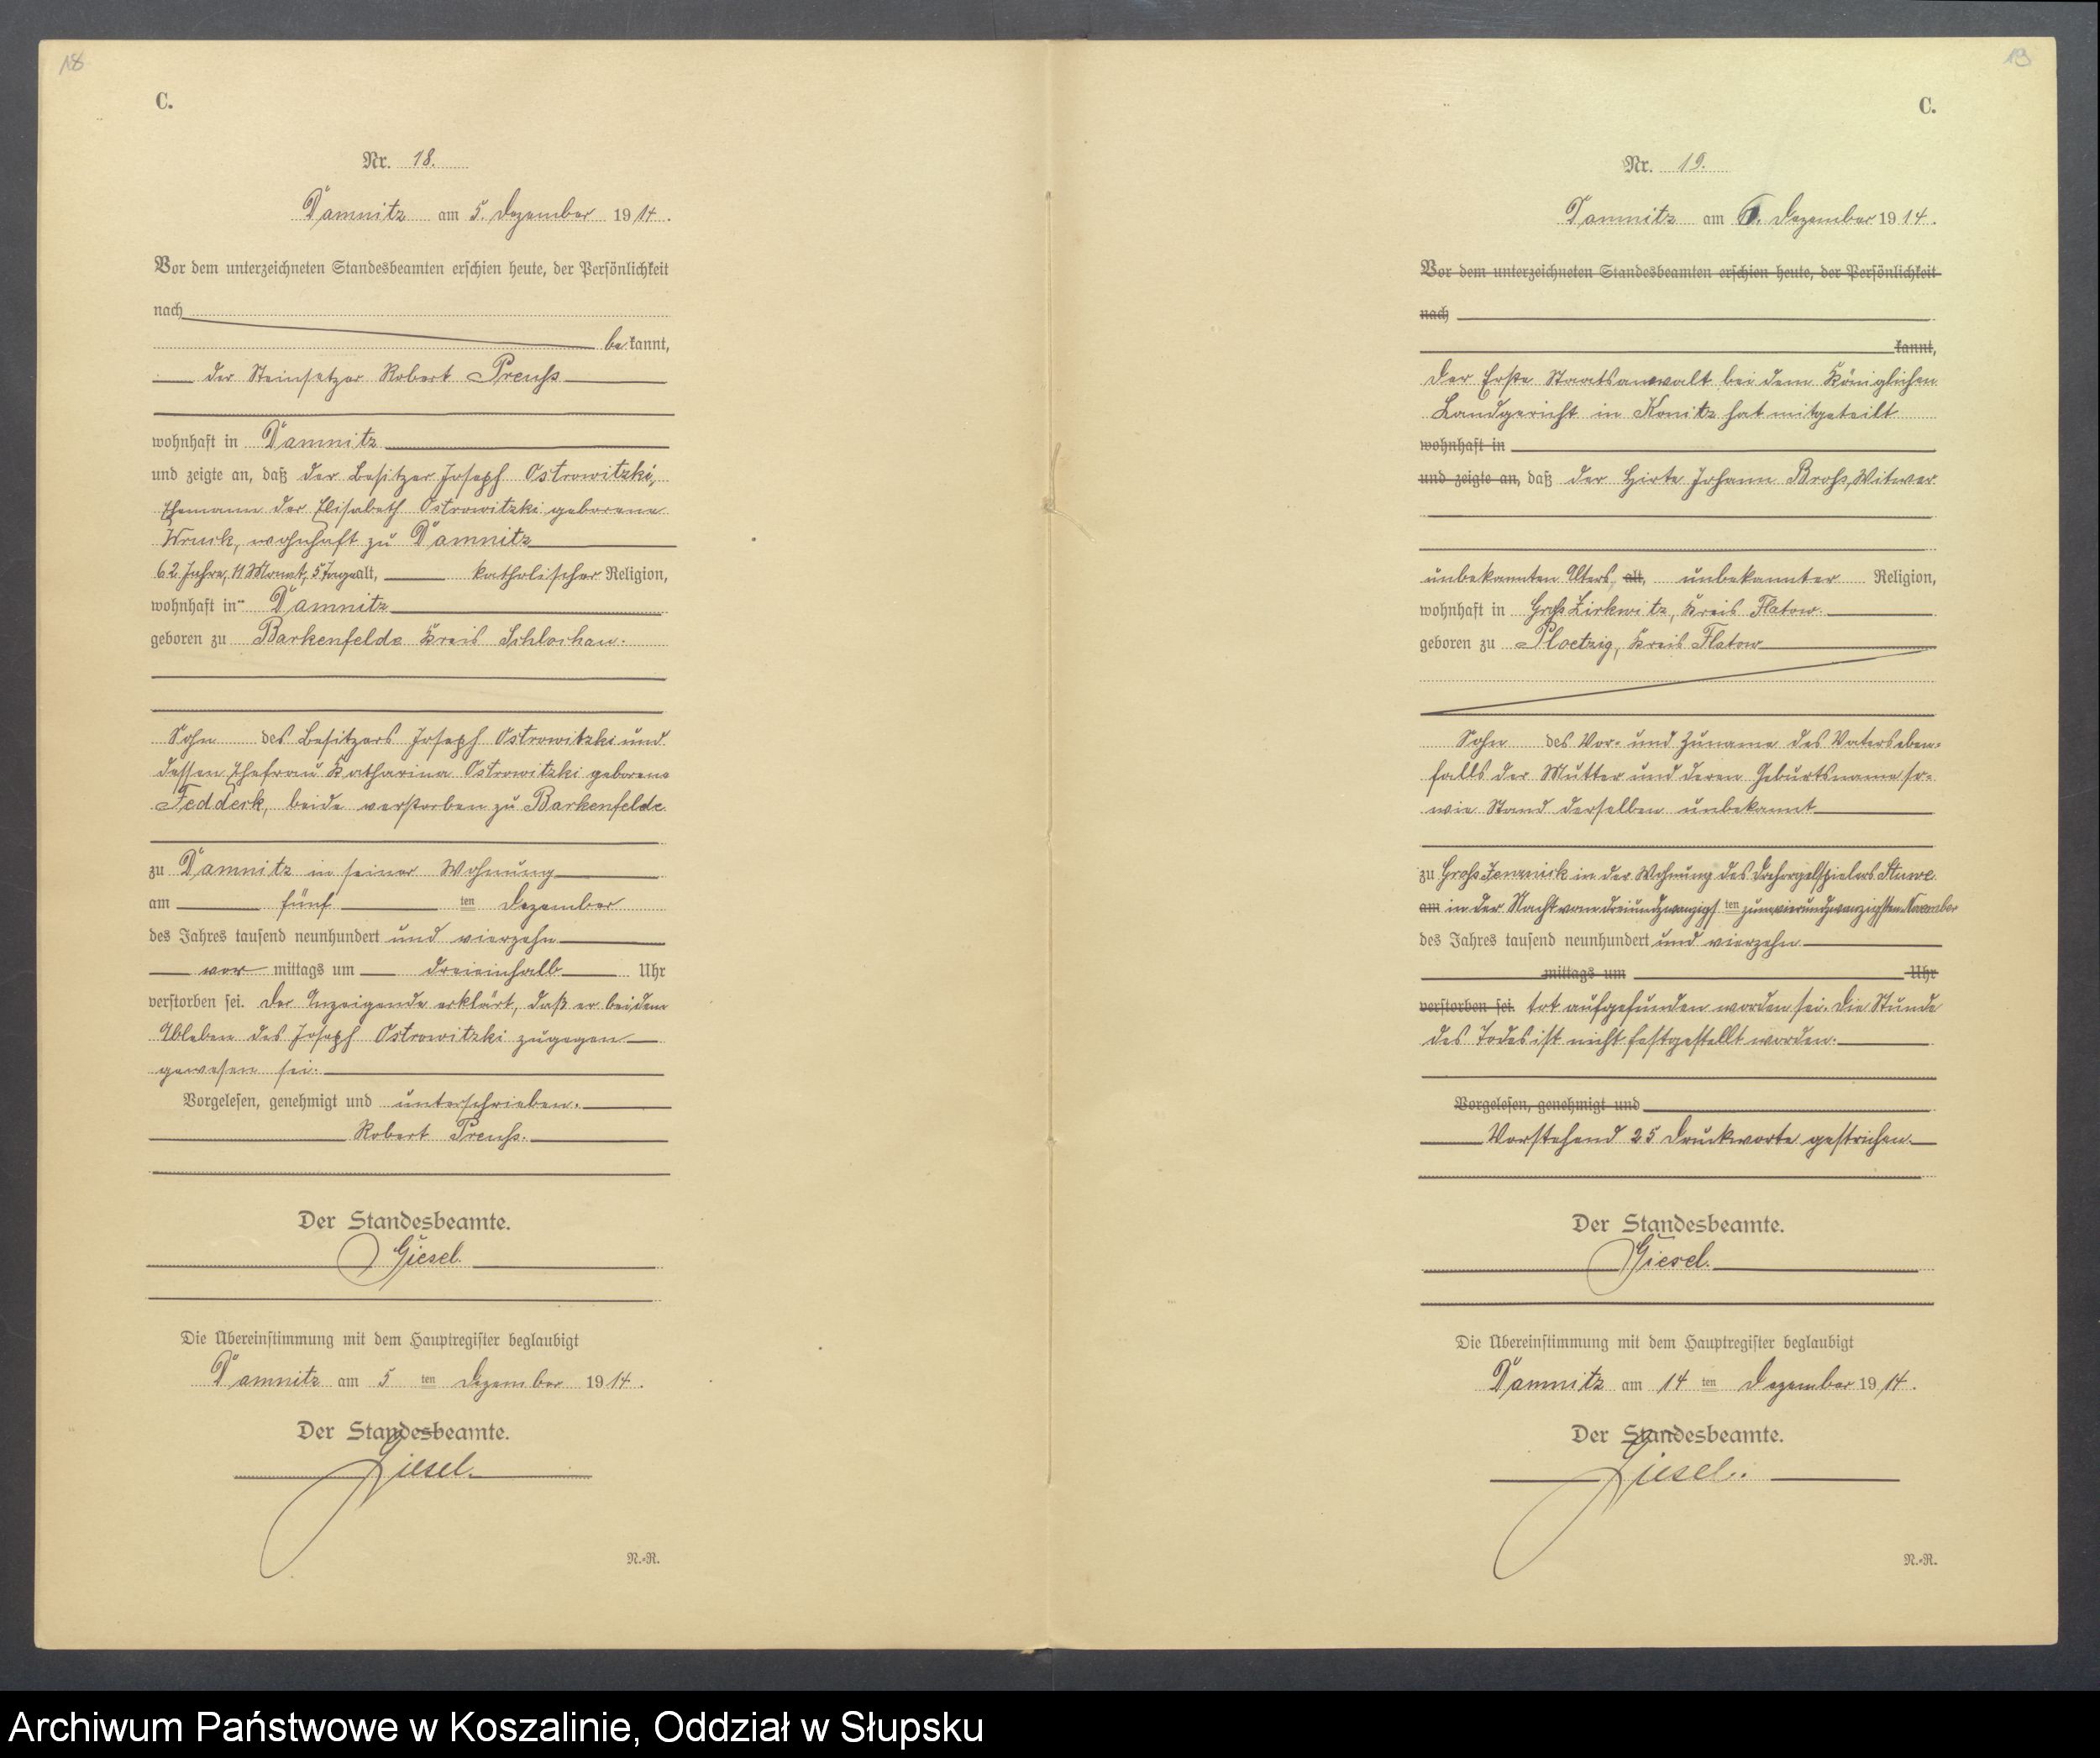 18
C.
Nr. 18.
Damnitz am 5. Dezember 1914.
Vor dem unterzeichneten Standesbeamten erschien heute, der Persönlichkeit
nach
be kannt,
der Steinsetzer Robert Preuss
wohnhaft in Damnitz
und zeigte an, daß der Besitzer Joseph Ostrowitzki,
Ehemann der Elisabeth Ostrowitzki geborene
Wruck, wohnhaft zu Damnitz
62 Jahre, 11 Monat, 5 Tage alt, katholischer Religion,
wohnhaft in Damnitz
geboren zu Barkenfelde Kreis Schlochau.
Sohn des Besitzers Joseph Ostrowitzki und
dessen Ehefrau Katharina Ostrowitzki geborene
Fedderk, beide verstorben zu Barkenfelde
zu Damnitz in seiner Wohnung
am fünf ten Dezember
des Jahres tausend neunhundert und vierzehn
vor mittags um dreieinhalb Uhr
verstorben sei. Der Anzeigende erklärt, daß er bei dem
Ableben des Joseph Ostrowitzki zugegen
gewesen sei.
Vorgelesen, genehmigt und unterschrieben.
Robert Preuss.
Der Standesbeamte.
Giesel.
Die Übereinstimmung mit dem Hauptregister beglaubigt
Damnitz am 5 ten Dezember 1914.
Der Standesbeamte.
Giesel.
N.-R.
19
C.
Nr. 19.
Damnitz am Dezember 1914.
Vor dem unterzeichneten Standesbeamten erschien heute, der Persönlichkeit
nach
kannt,
Der Erste Staatsanwalt bei dem Königlichen
Landgericht in Konitz hat mitgeteilt
wohnhaft in
und zeigte an, daß der Hirte Johann Brohs, Witwer
unbekannten Alters, alt, unbekannter Religion,
wohnhaft in Gross Zirkwitz, Kreis Flatow.
geboren zu Ploetzig, Kreis Flatow
Sohn des Vor- und Zuname des Vaters eben-
falls der Mutter und deren Geburtsname so-
wie Stand derselben unbekannt
zu Gross Jenznick in der Wohnung des Drehorgelspielers Stuwe
am in der Nacht vom dreiundzwanzigs ten zum vierundzwanzigsten November
des Jahres tausend neunhundert und vierzehn
mittags um Uhr
verstorben sei. tot aufgefunden worden sei. Die Stunde
des Todes ist nicht festgestellt worden.
Vorgelesen, genehmigt und
Vorstehend 25 Druckworte gestrichen.
Der Standesbeamte.
Giesel.
Die Übereinstimmung mit dem Hauptregister beglaubigt
Damnitz am 14 ten Dezember 1914.
Der Standesbeamte.
Giesel.
N.-R.
Archiwum Państwowe w Koszalinie, Oddział w Słupsku